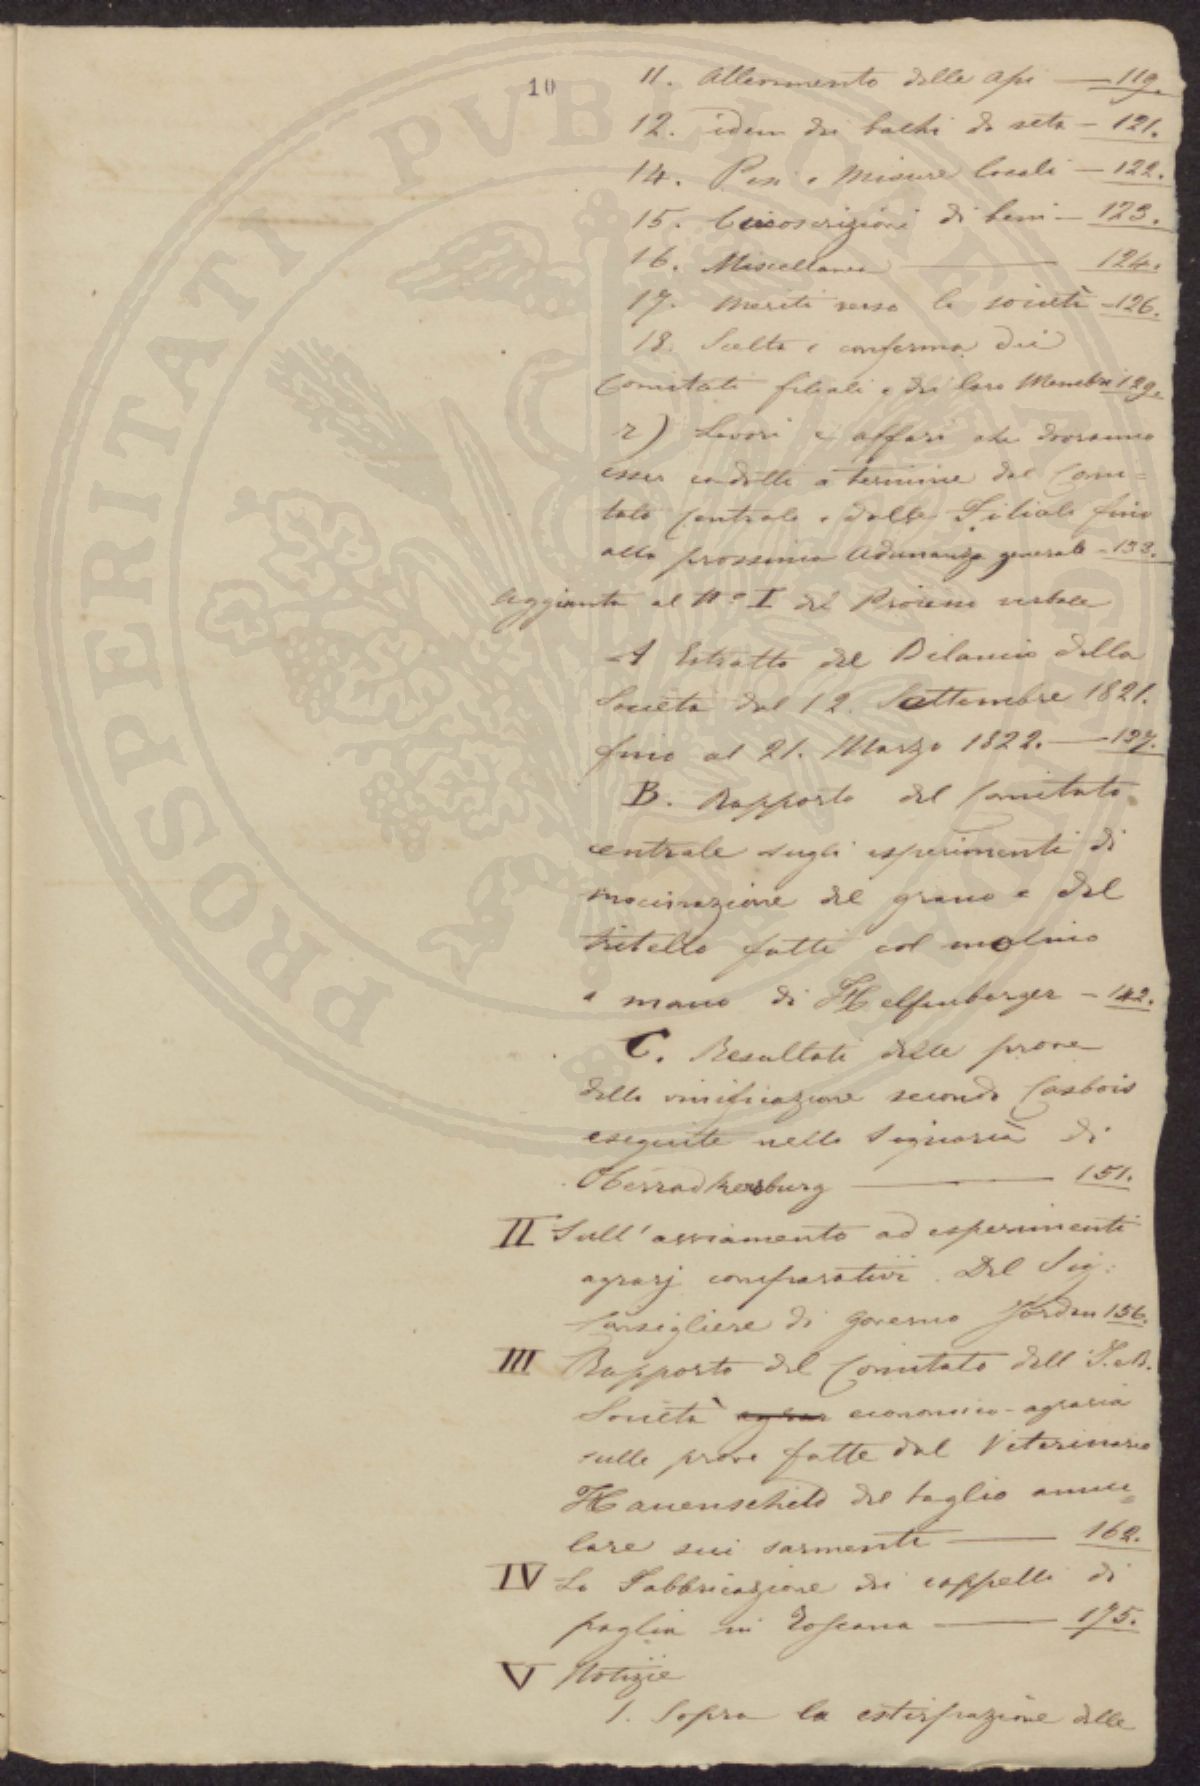 10
11. Allevamento delle Api — 119.
12. idem dei bachi da seta — 121.
14. Pesi e Misure locali — 122.
15. Circoscrizioni di beni — 123.
16. Miscellanea — 124.
17. Meriti verso la società — 126.
18. Scelta e conferma dei
Comitati filiali e dei loro Membri 129.
r) Lavori e affari che dovranno
esser condotti a termine dal Comi=
tato Centrale e dalle Filiali fino
alla prossima Adunanza generale — 133.
Aggiunta al N.º I del Processo verbale
A Estratto del Bilancio della
Società dal 12. Settembre 1821.
fino al 21. Marzo 1822. — 137.
B. Rapporto del Comitato
centrale sugli esperimenti di
macinazione del grano e del
tritello fatti col molino
a mano di Helfenberger — 142.
C. Resultati delle prove
della vinificazione secondo Casbois
eseguite nella Signoria di
Oberradkersburg — 151.
II Sull'avviamento ad esperimenti
agrarj comparativi. Del Sig:
Consigliere di Governo Jordan 156.
III Rapporto del Comitato dell'I. e R.
Società agrar economico-agraria
sulle prove fatte dal Veterinario
Hauenschild del taglio annu=
lare sui sarmenti — 162.
IV La Fabbricazione dei cappelli di
paglia in Toscana — 175.
V Notizie
1. Sopra la estirpazione delle
PROSPERITATI PVBLICAE AVGENDAE